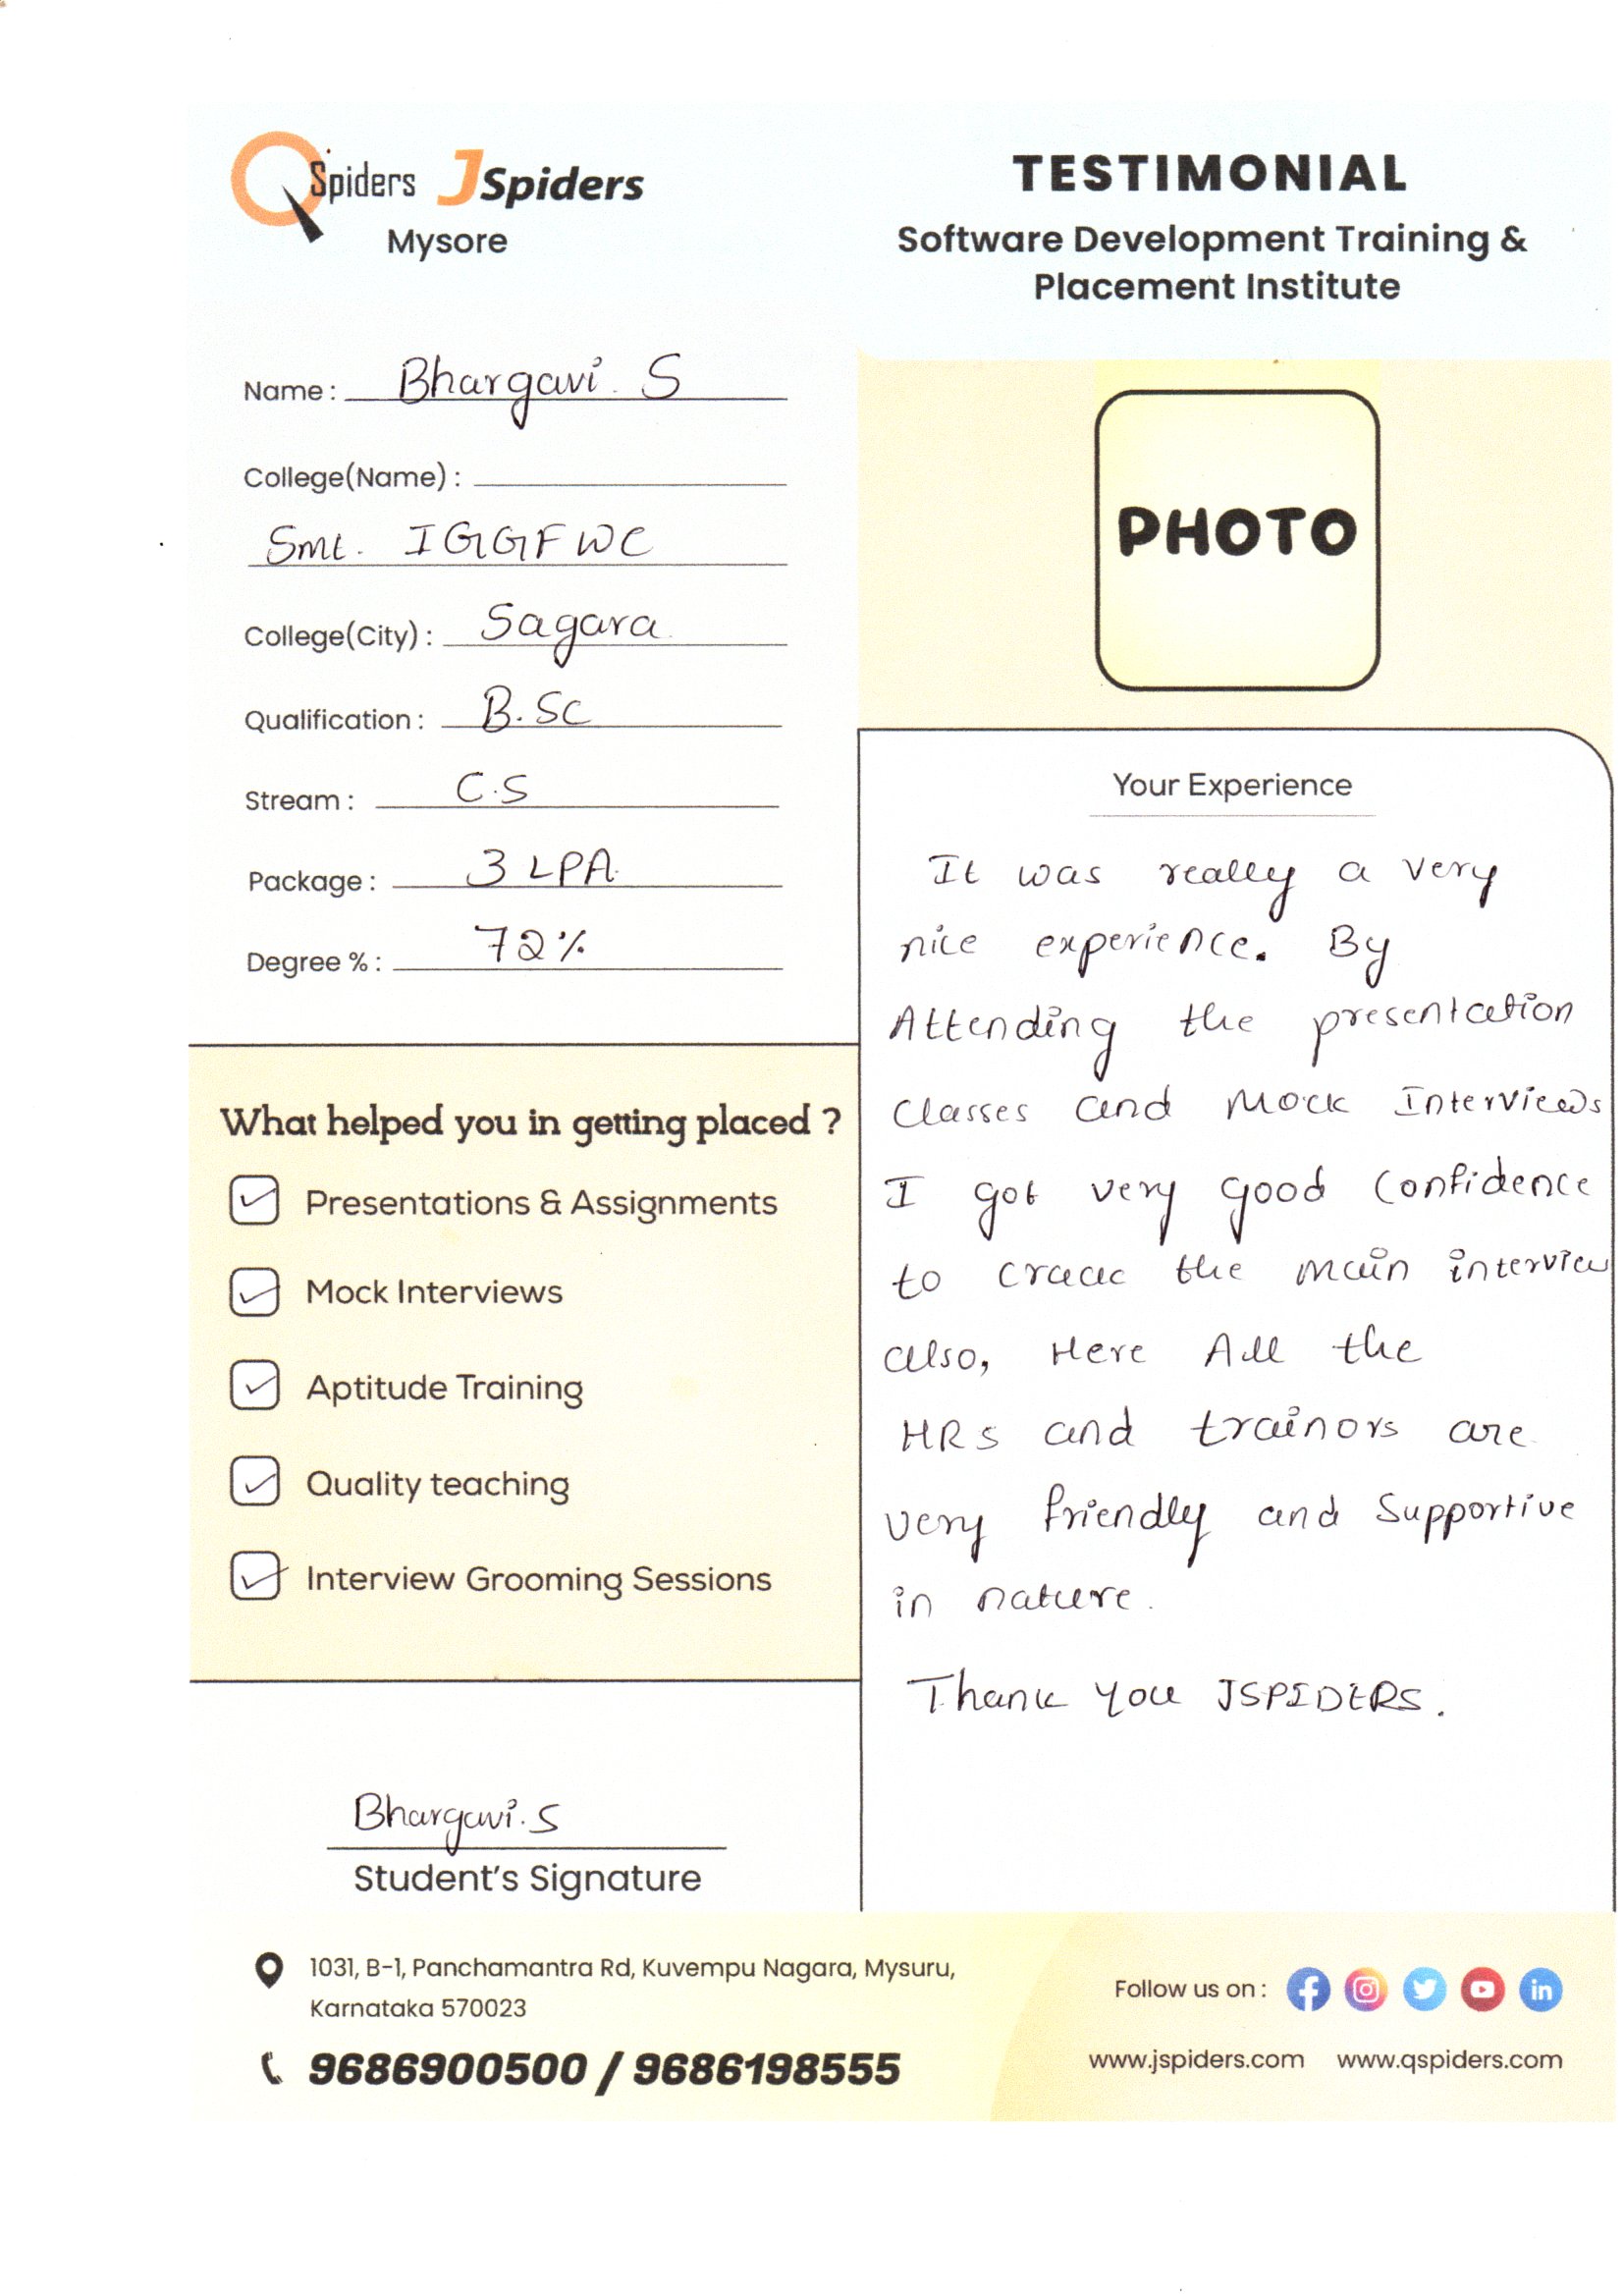 QSpiders JSpiders
Mysore
TESTIMONIAL
Software Development Training &
Placement Institute
Name : Bhargavi. S
College(Name) :
Smt. IGGFWC
College(City) : Sagara
Qualification : B.Sc
Stream : C.S
Package : 3 LPA
Degree % : 72%
PHOTO
What helped you in getting placed ?
Presentations & Assignments
Mock Interviews
Aptitude Training
Quality teaching
Interview Grooming Sessions
Bhargavi.S
Student's Signature
Your Experience
It was really a very
nice experience. By
Attending the presentation
Classes and Mock Interviews
I got very good Confidence
to crack the main interview
also, Here All the
HRs and trainors are
very friendly and Supportive
in nature.
Thank you JSPIDERS.
1031, B-1, Panchamantra Rd, Kuvempu Nagara, Mysuru,
Karnataka 570023
9686900500 / 9686198555
Follow us on :
www.jspiders.com www.qspiders.com